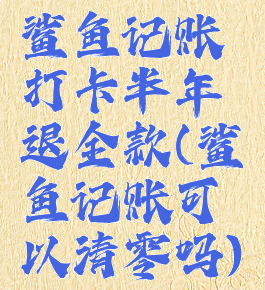 鲨鱼记账
打卡半年
退全款(鲨
鱼记账可
以清零吗)